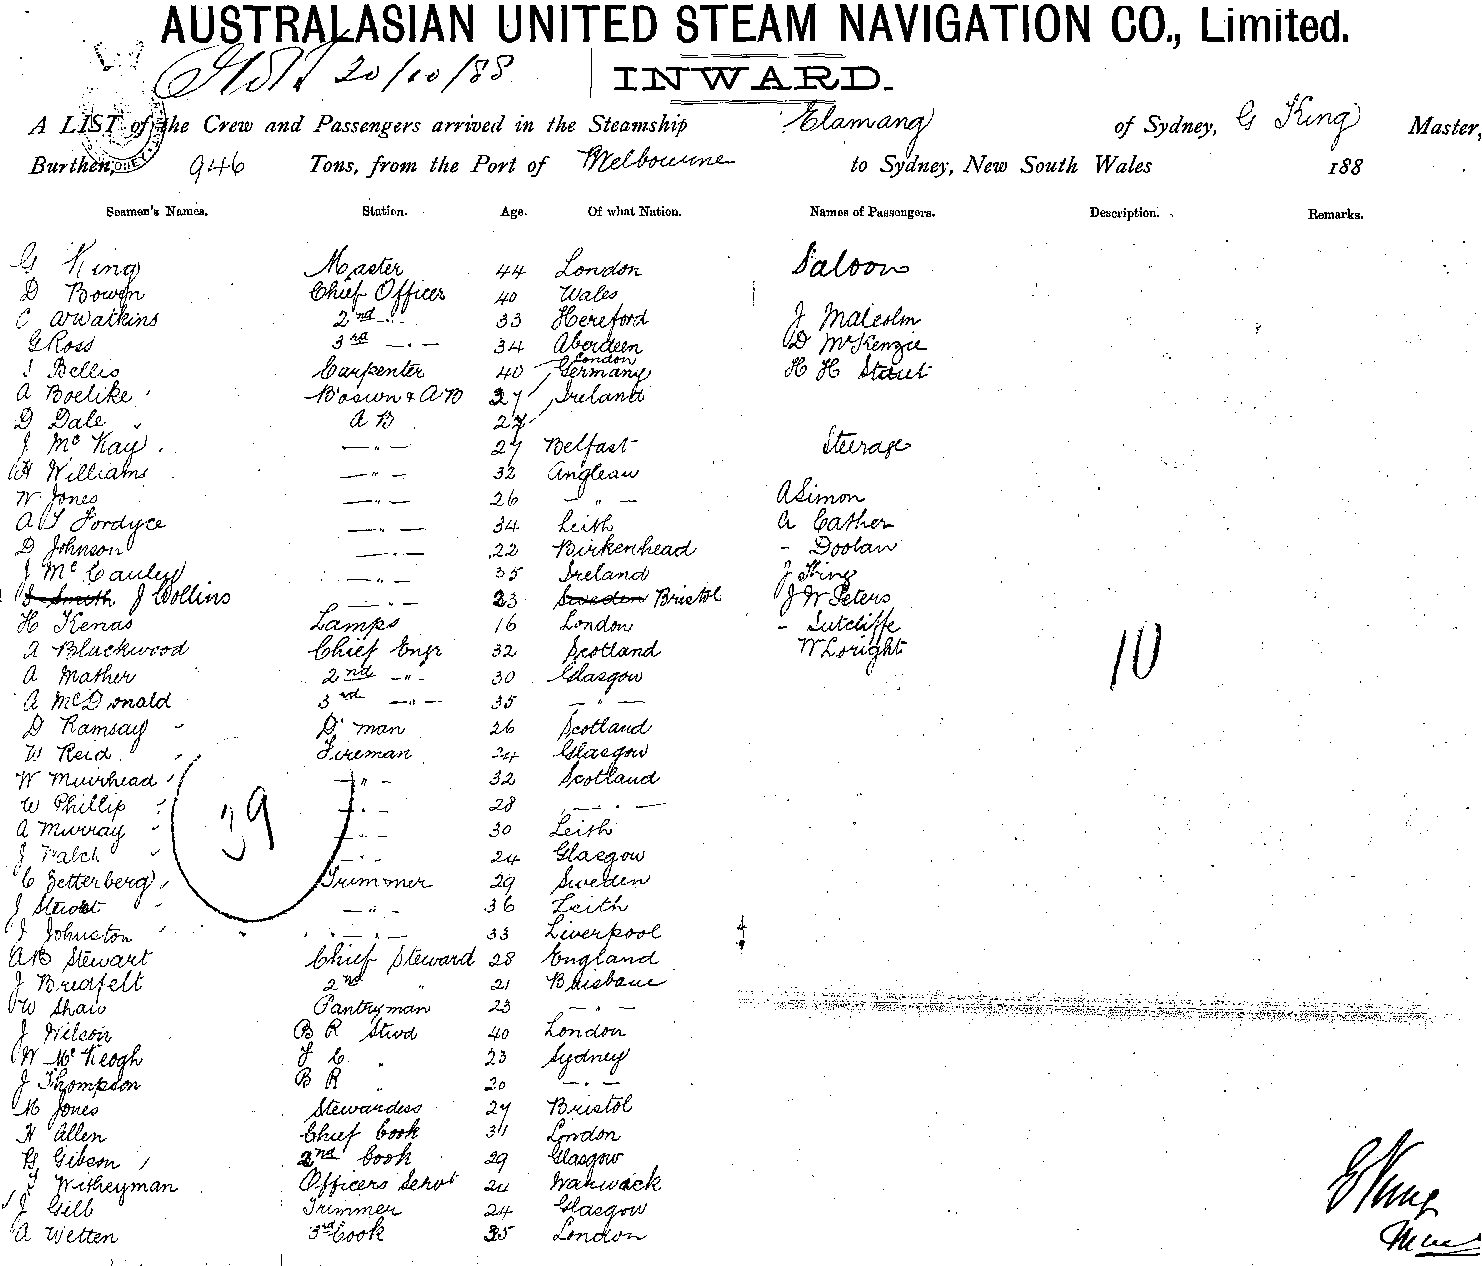 AUSTRALASIAN UNITED STEAM NAVIGATION CO., Limited.
20/10/88 INWARD.
A LIST of the Crew and Passengers arrived in the Steamship Elamang of Sydney, G King Master,
Burthen, 946 Tons, from the Port of Melbourne to Sydney, New South Wales 188
Seamen's Names. Station. Age. Of what Nation. Names of Passengers. Description. Remarks.
G King Master 44 London Saloon
D Bowen Chief Officer 40 Wales
C A Watkins 2nd -"- 33 Hereford J Malcolm
G Ross 3rd -"- 34 Aberdeen D McKenzie
London
J Bellis Carpenter 40 Germany H H
A Boelike Boswn & AB 27 Ireland
D Dale AB 27
J McKay -"- 27 Belfast Steerage
H Williams -"- 32
W Jones -"- 26 -"- A Simon
A T Fordyce -"- 34 Leith A Cather
D Johnson -"- 22 Birkenhead - Doolan
J McCauley -"- 35 Ireland J King
J Smith J Collins -"- 23 Sweden Bristol J W Peters
H Kenas Lamps 16 London - Sutcliffe
A Blackwood Chief Engr 32 Scotland W Loright
A Mather 2nd -"- 30 Glasgow 10
A McDonald 3rd -"- 35 -"-
D Ramsay D'man 26 Scotland
W Reid Fireman 24 Glasgow
W Muirhead -"- 32 Scotland
W Phillip -"- 28 -"-
39
A Murray -"- 30 Leith
J Walch -"- 24 Glasgow
C Zetterberg Trimmer 29 Sweden
J Stewart -"- 36 Leith
J Johnston -"- 33 Liverpool
A B Stewart Chief Steward 28 England
J Bredfelt 2nd " 21 Brisbane
W Shaw Pantryman 23 -"-
J Wilson B R Stwd 40 London
W McKeogh F C " 23 Sydney
J Thompson B R " 20 -"-
M Jones Stewardess 27 Bristol
H Allen Chief Cook 31 London
G Gibson 2nd Cook 29 Glasgow
T Witheyman Officers Servt 24 Warwick
J Gill Trimmer 24 Glasgow
A Wetten 3rd Cook 35 London
G King